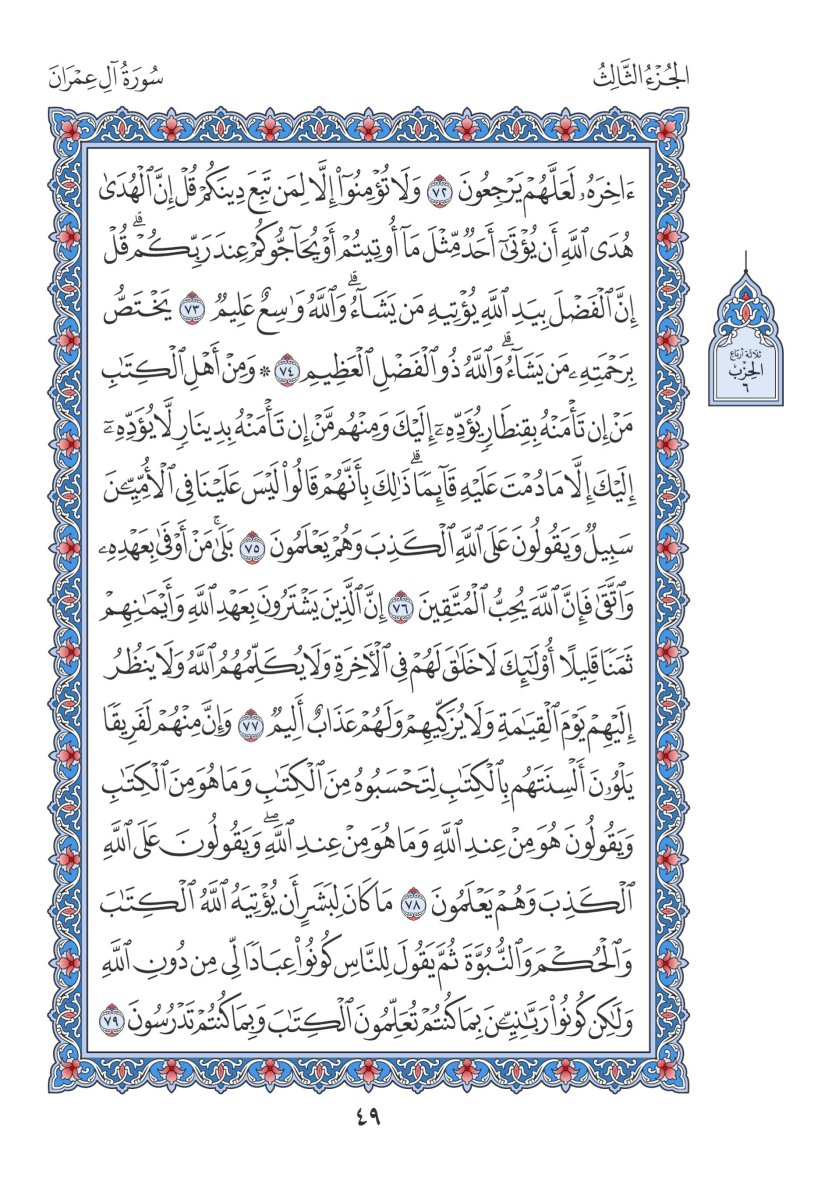 الجُزْءُ الثَّالِثُ
سُورَةُ آلِ عِمْرَانَ
ءَاخِرَهُۥ لَعَلَّهُمْ يَرْجِعُونَ ٧٢ وَلَا تُؤْمِنُوٓا۟ إِلَّا لِمَن تَبِعَ دِينَكُمْ قُلْ إِنَّ ٱلْهُدَىٰ
هُدَى ٱللَّهِ أَن يُؤْتَىٰٓ أَحَدٌ مِّثْلَ مَآ أُوتِيتُمْ أَوْ يُحَآجُّوكُمْ عِندَ رَبِّكُمْ ۗ قُلْ
إِنَّ ٱلْفَضْلَ بِيَدِ ٱللَّهِ يُؤْتِيهِ مَن يَشَآءُ ۗ وَٱللَّهُ وَٰسِعٌ عَلِيمٌ ٧٣ يَخْتَصُّ
بِرَحْمَتِهِۦ مَن يَشَآءُ ۗ وَٱللَّهُ ذُو ٱلْفَضْلِ ٱلْعَظِيمِ ٧٤ * وَمِنْ أَهْلِ ٱلْكِتَٰبِ
مَنْ إِن تَأْمَنْهُ بِقِنطَارٍ يُؤَدِّهِۦٓ إِلَيْكَ وَمِنْهُم مَّنْ إِن تَأْمَنْهُ بِدِينَارٍ لَّا يُؤَدِّهِۦٓ
إِلَيْكَ إِلَّا مَا دُمْتَ عَلَيْهِ قَآئِمًا ۗ ذَٰلِكَ بِأَنَّهُمْ قَالُوا۟ لَيْسَ عَلَيْنَا فِى ٱلْأُمِّيِّۦنَ
سَبِيلٌ وَيَقُولُونَ عَلَى ٱللَّهِ ٱلْكَذِبَ وَهُمْ يَعْلَمُونَ ٧٥ بَلَىٰ ۚ مَنْ أَوْفَىٰ بِعَهْدِهِۦ
وَٱتَّقَىٰ فَإِنَّ ٱللَّهَ يُحِبُّ ٱلْمُتَّقِينَ ٧٦ إِنَّ ٱلَّذِينَ يَشْتَرُونَ بِعَهْدِ ٱللَّهِ وَأَيْمَٰنِهِمْ
ثَمَنًا قَلِيلًا أُو۟لَٰٓئِكَ لَا خَلَٰقَ لَهُمْ فِى ٱلْءَاخِرَةِ وَلَا يُكَلِّمُهُمُ ٱللَّهُ وَلَا يَنظُرُ
إِلَيْهِمْ يَوْمَ ٱلْقِيَٰمَةِ وَلَا يُزَكِّيهِمْ وَلَهُمْ عَذَابٌ أَلِيمٌ ٧٧ وَإِنَّ مِنْهُمْ لَفَرِيقًا
يَلْوُۥنَ أَلْسِنَتَهُم بِٱلْكِتَٰبِ لِتَحْسَبُوهُ مِنَ ٱلْكِتَٰبِ وَمَا هُوَ مِنَ ٱلْكِتَٰبِ
وَيَقُولُونَ هُوَ مِنْ عِندِ ٱللَّهِ وَمَا هُوَ مِنْ عِندِ ٱللَّهِ ۖ وَيَقُولُونَ عَلَى ٱللَّهِ
ٱلْكَذِبَ وَهُمْ يَعْلَمُونَ ٧٨ مَا كَانَ لِبَشَرٍ أَن يُؤْتِيَهُ ٱللَّهُ ٱلْكِتَٰبَ
وَٱلْحُكْمَ وَٱلنُّبُوَّةَ ثُمَّ يَقُولَ لِلنَّاسِ كُونُوا۟ عِبَادًا لِّى مِن دُونِ ٱللَّهِ
وَلَٰكِن كُونُوا۟ رَبَّٰنِيِّۦنَ بِمَا كُنتُمْ تُعَلِّمُونَ ٱلْكِتَٰبَ وَبِمَا كُنتُمْ تَدْرُسُونَ ٧٩
ثلاثة أرباع
الحِزْب
٦
٤٩